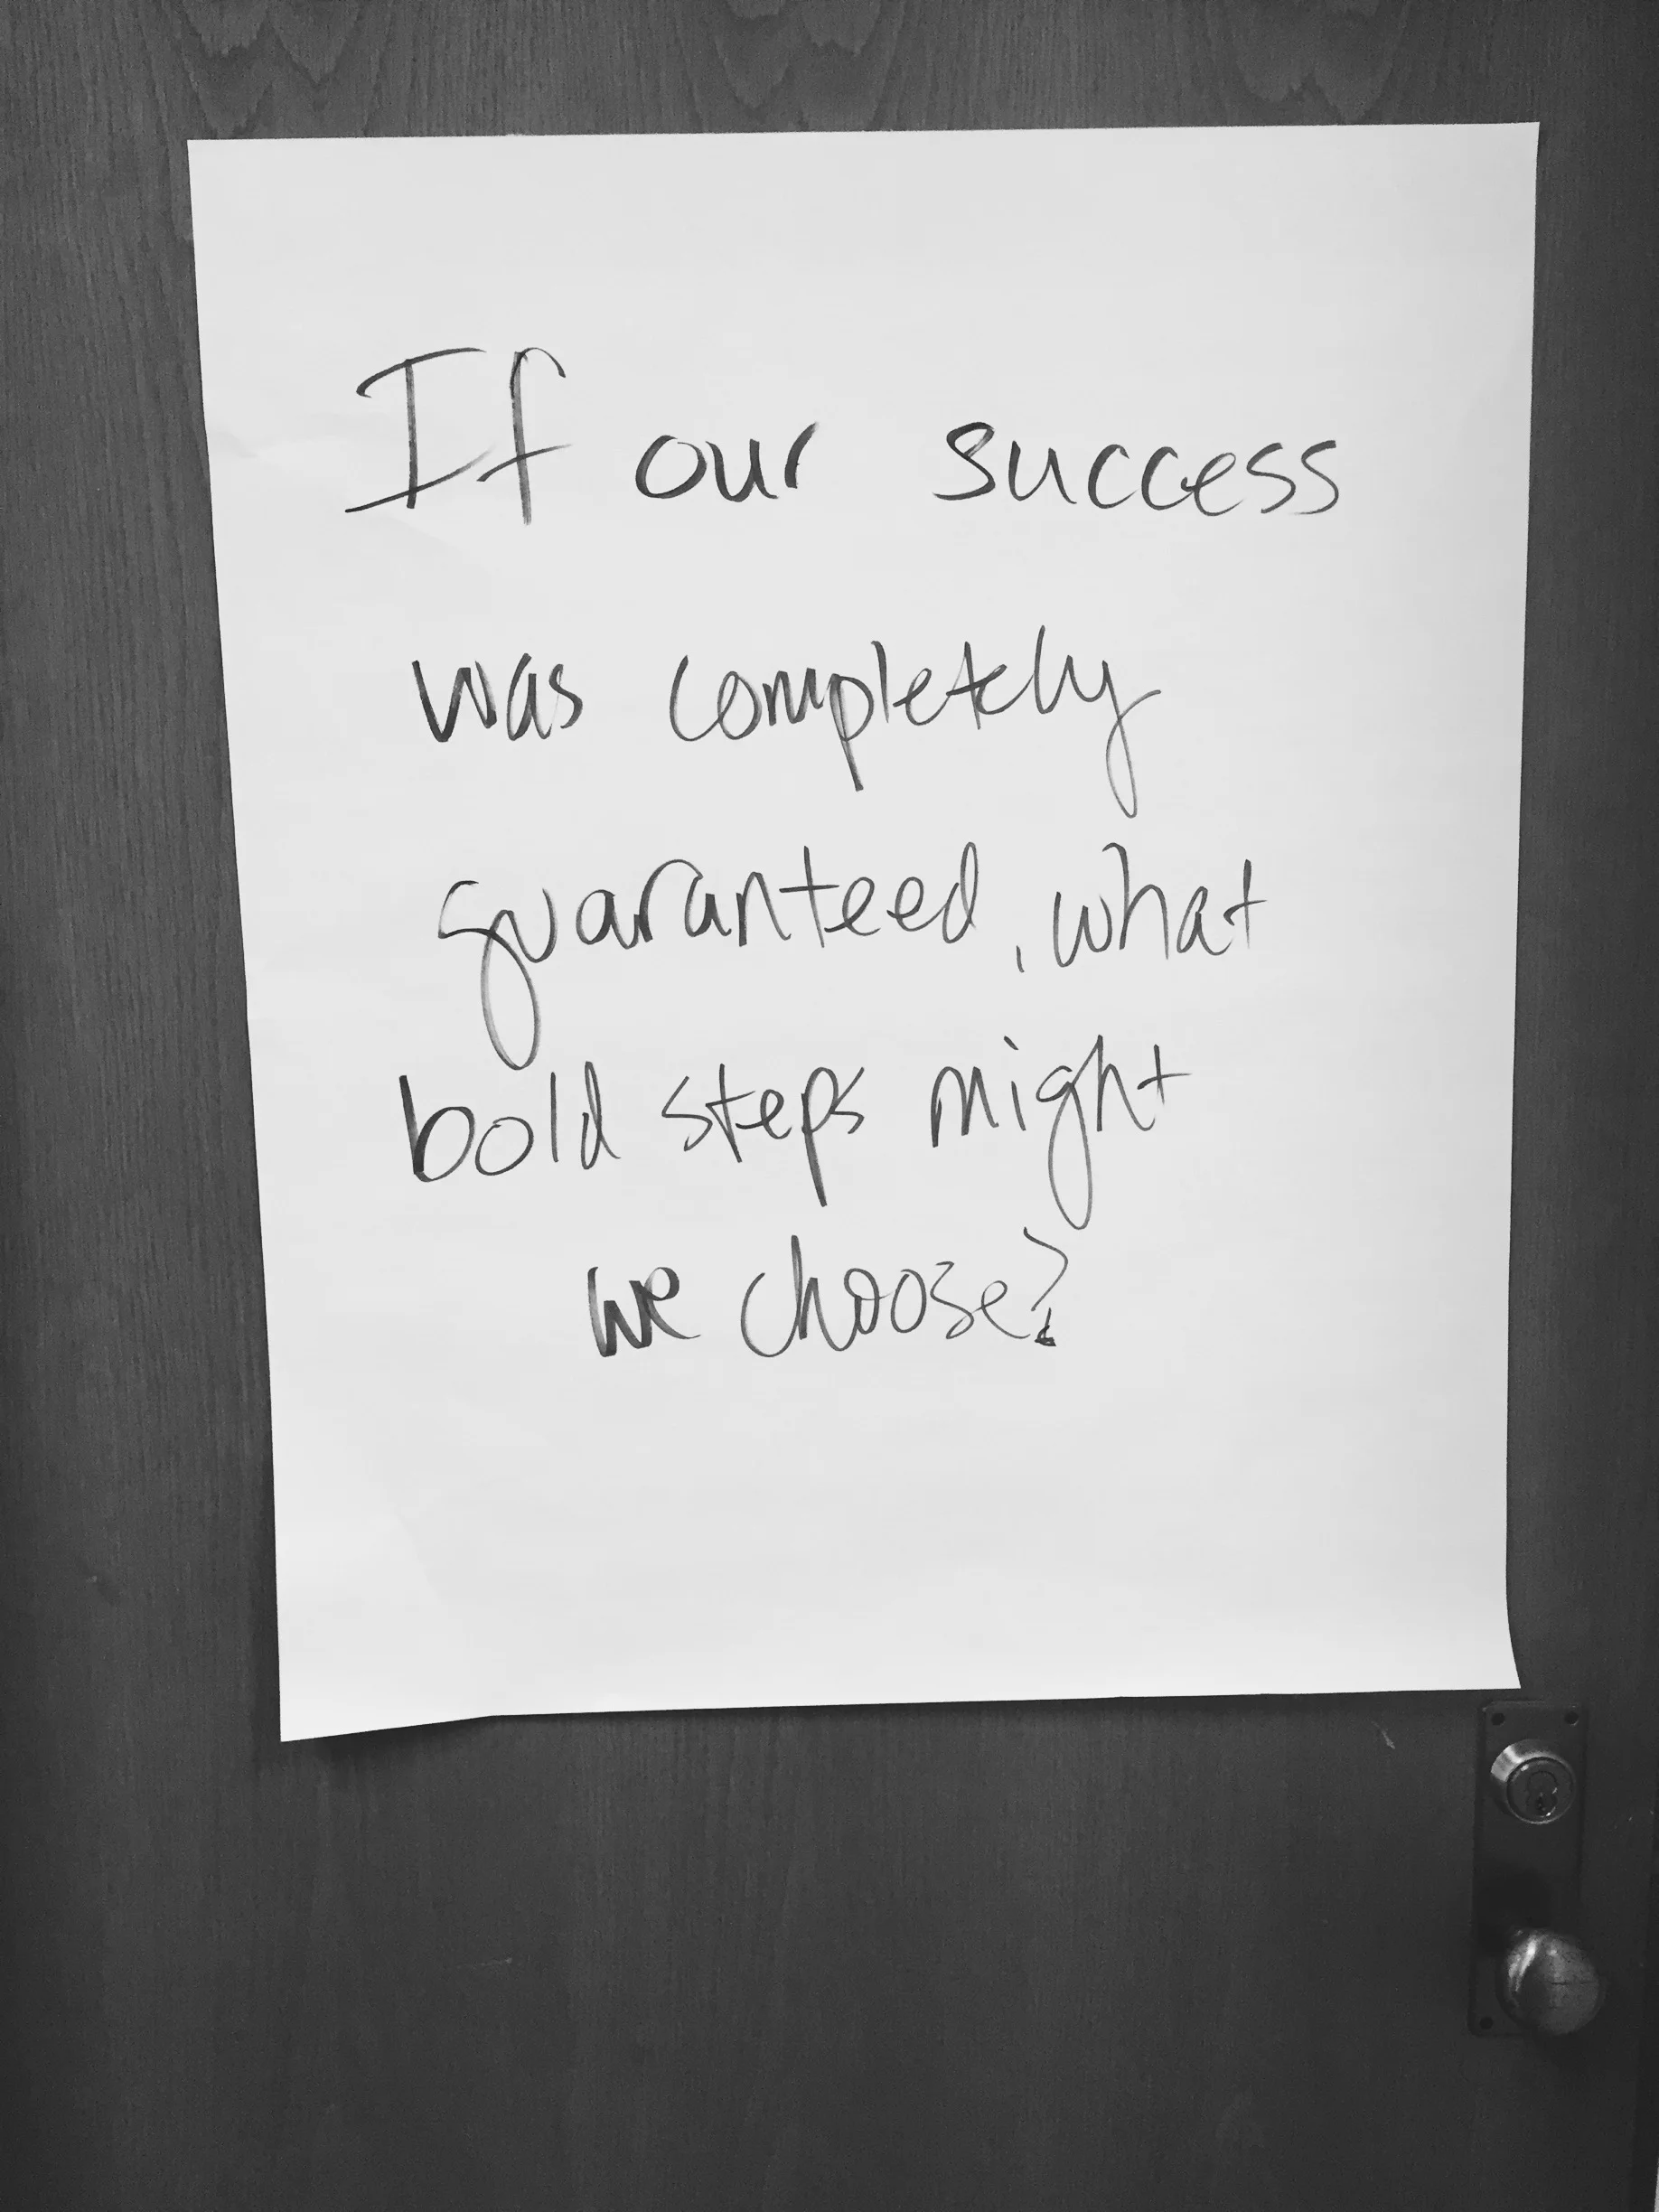 If our success
was completely
guaranteed, what
bold steps might
we choose?